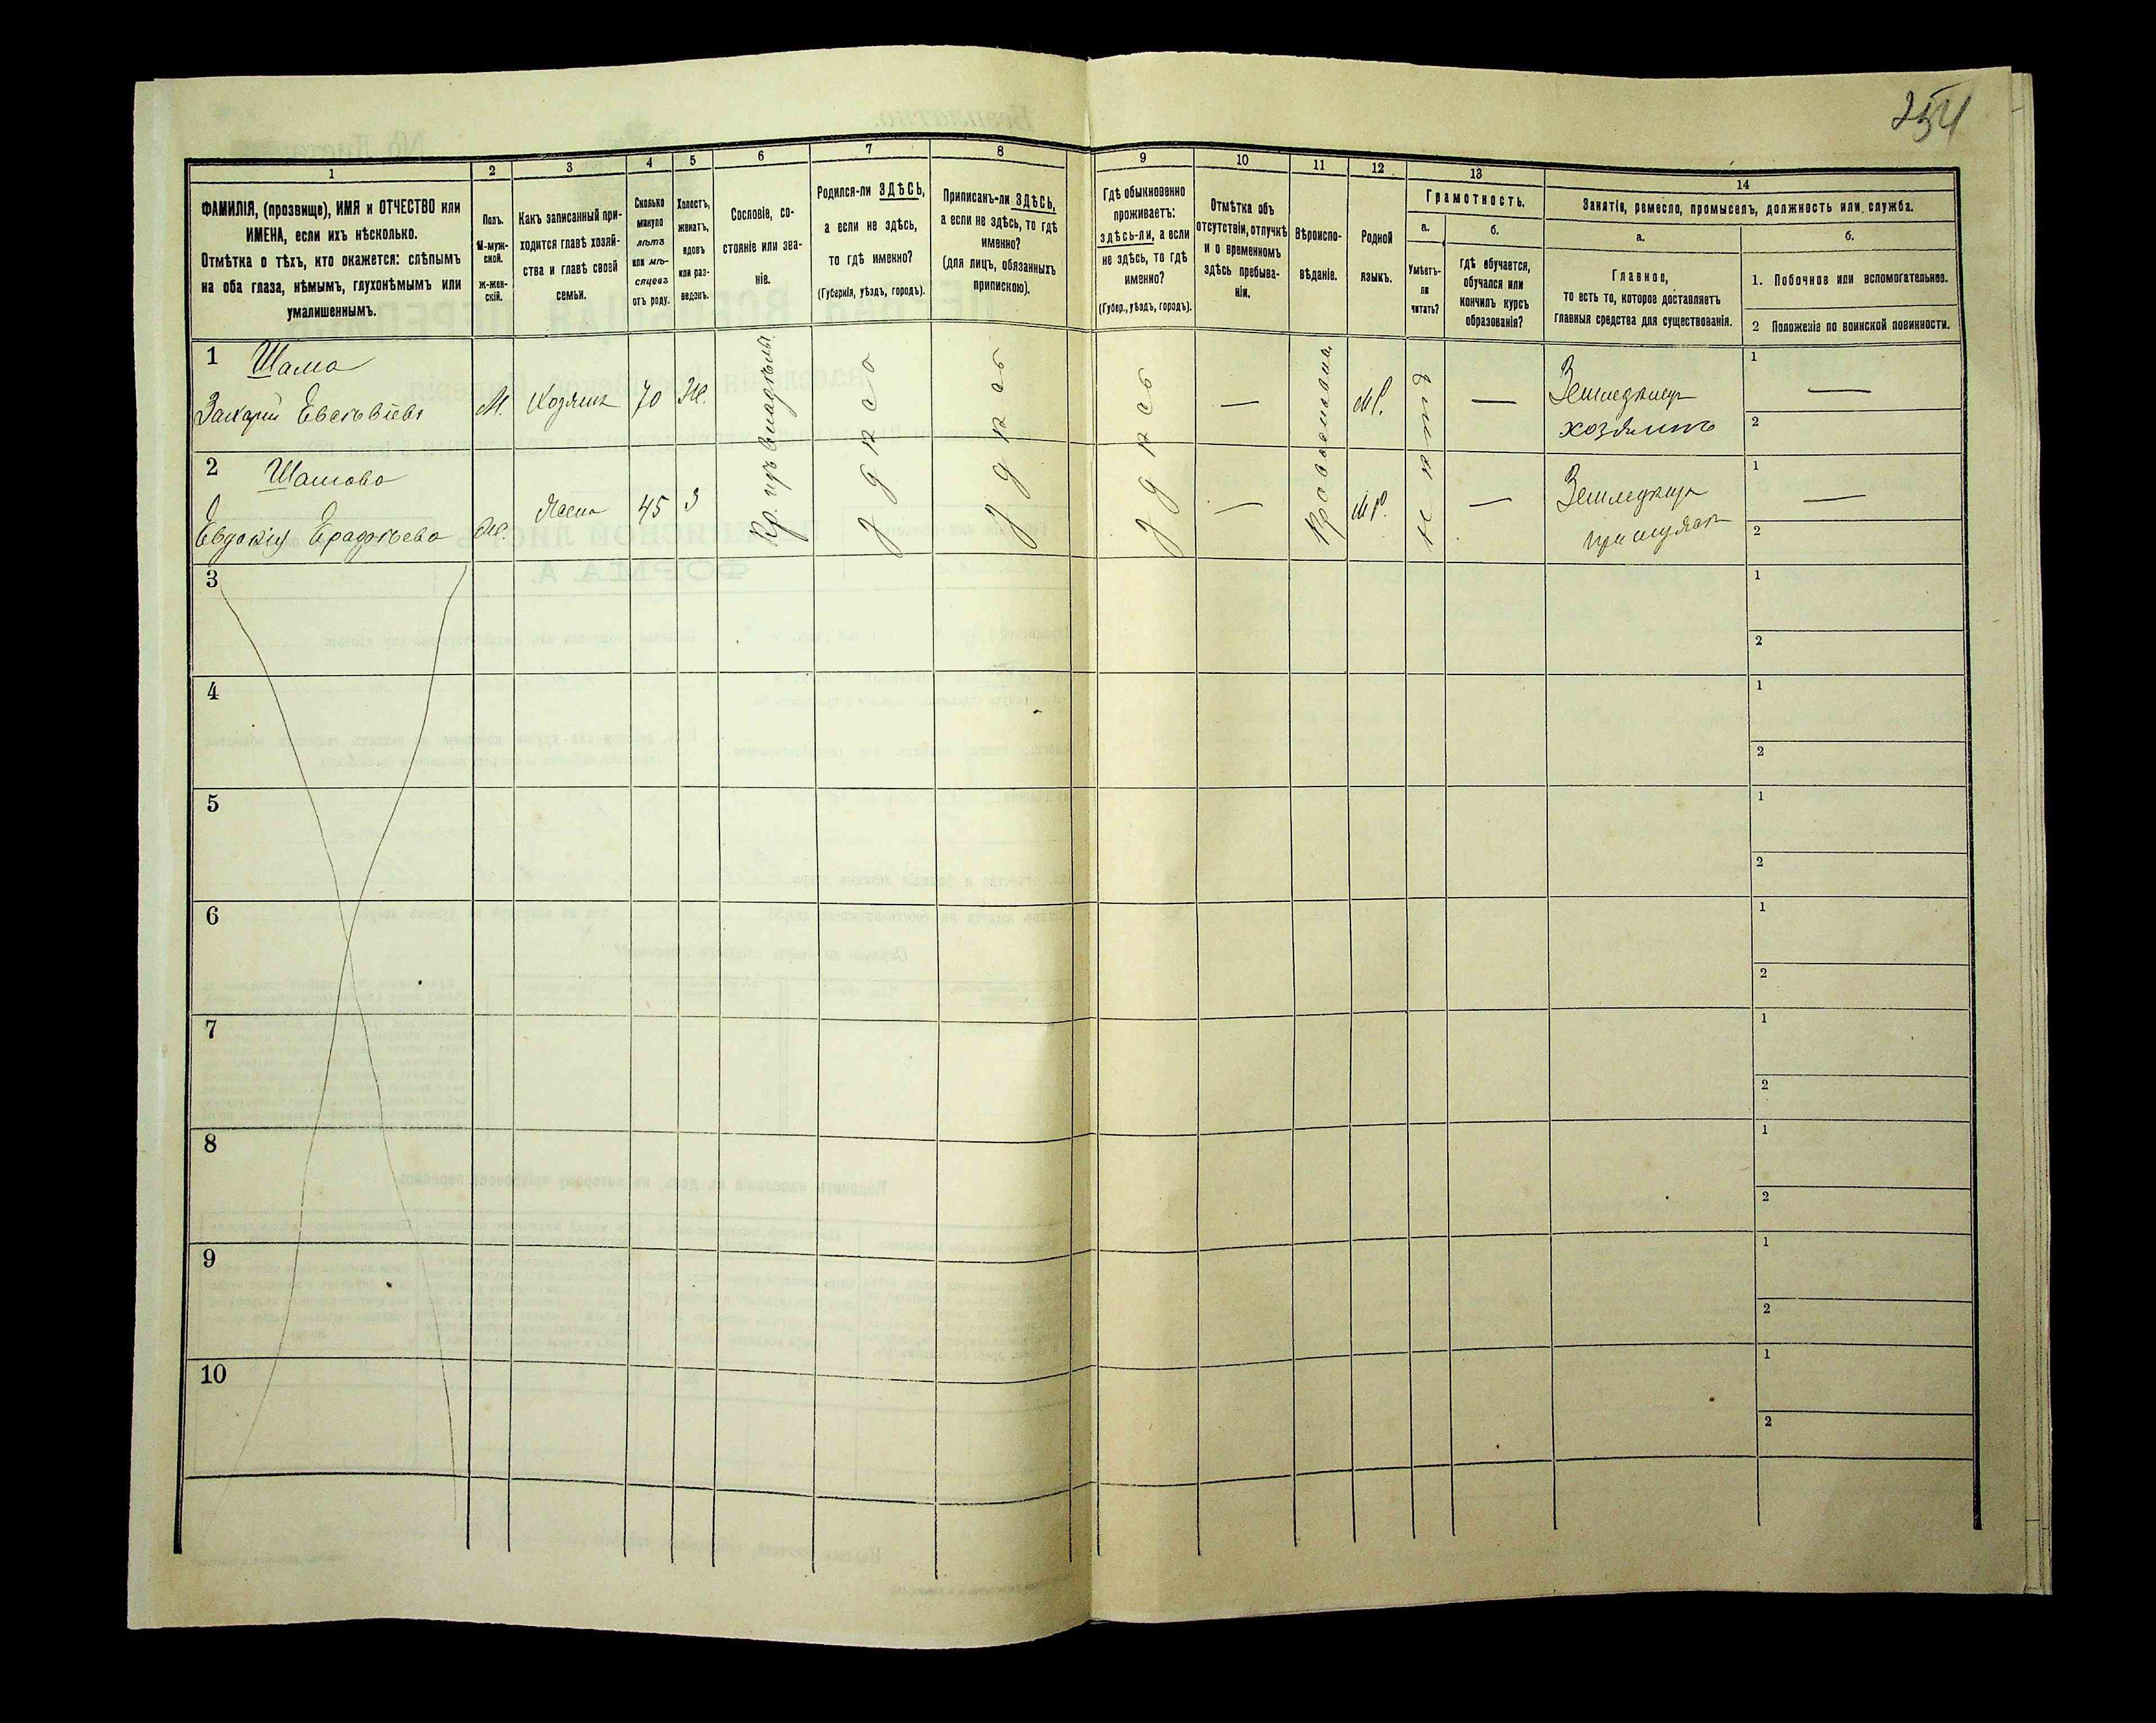 254
1
2
3
4
5
6
7
8
9
10
11
12
13
14
ФАМИЛІЯ, (прозвище), ИМЯ и ОТЧЕСТВО или
ИМЕНА, если ихъ нѣсколько.
Отмѣтка о тѣхъ, кто окажется: слѣпымъ
на оба глаза, нѣмымъ, глухонѣмымъ или
умалишеннымъ.
Полъ.
М-муж-
ской.
ж-жен-
скій.
Какъ записанный при-
ходится главѣ хозяй-
ства и главѣ своей
семьи.
Сколько
минуло
лѣтъ
или мѣ-
сяцевъ
отъ роду.
Холостъ,
женатъ,
вдовъ
или раз-
веденъ.
Сословіе, со-
стояніе или зва-
ніе.
Родился-ли ЗДѢСЬ,
а если не здѣсь,
то гдѣ именно?
(Губернія, уѣздъ, городъ).
Приписанъ-ли ЗДѢСЬ,
а если не здѣсь, то гдѣ
именно?
(для лицъ, обязанныхъ
припискою).
Гдѣ обыкновенно
проживаетъ:
здѣсь-ли, а если
не здѣсь, то гдѣ
именно?
(Губер., уѣздъ, городъ).
Отмѣтка объ
отсутствіи, отлучкѣ
и о временномъ
здѣсь пребыва-
ніи.
Вѣроиспо-
вѣданіе.
Родной
языкъ.
Грамотность.
а.
Умѣетъ-
ли
читать?
б.
гдѣ обучается,
обучался или
кончилъ курсъ
образованія?
Занятіе, ремесло, промыселъ, должность или служба.
а.
Главное,
то есть то, которое доставляетъ
главныя средства для существованія.
б.
1. Побочное или вспомогательное.
2 Положеніе по воинской повинности.
1 Шама
Захарій М. Хозяинъ 70 Ж. — М.Р. — Земледѣлецъ
хозяинъ
1 —
2
2 Шамова
Евдокія Ж. Жена 45 З — М.Р. — Земледѣл
1 —
2
здѣсь
здѣсь
здѣсь
Православная
нѣтъ
3
1
2
4
1
2
5
1
2
6
1
2
7
1
2
8
1
2
9
1
2
10
1
2